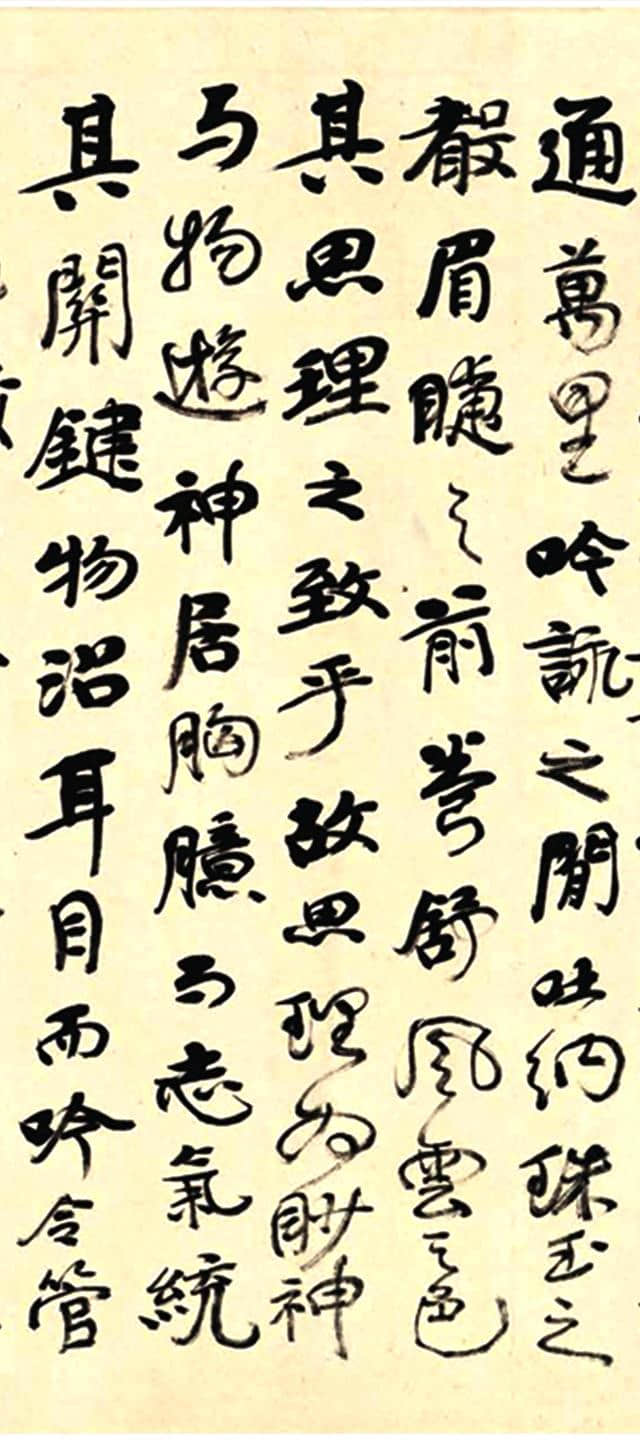 通萬里吟詠之閒吐納珠玉之
聲眉睫之前卷舒風雲之色
其思理之致乎故思理为眇神
与物遊神居胸臆而志氣統
其關鍵物沿耳目而吟令管